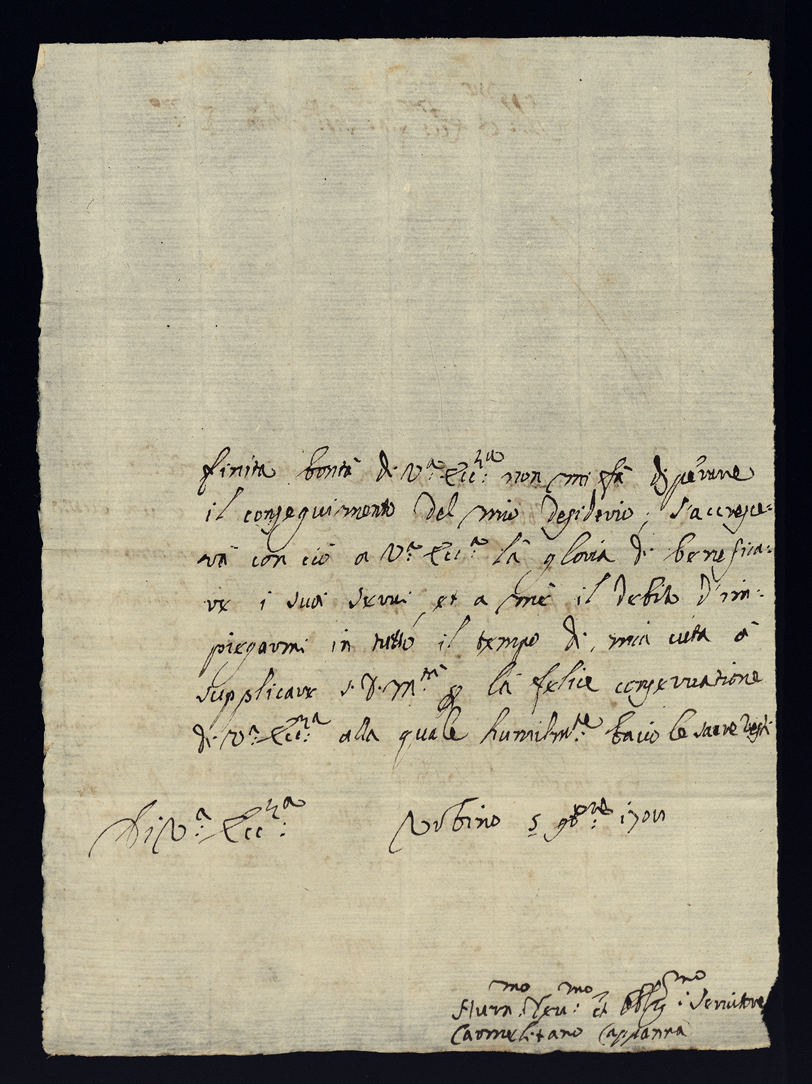 finita bontà di V.ª Ecc.za non mi fà disperare
il conseguimento del mio desiderio; s'accresce-
rà con ciò a V.ª Ecc.ª là gloria di benefica-
re i suoi servi, et a mè il debito d'im-
piegarmi in tutto il tempo di mia vita à
supplicare S. D. M.tà p la felice conservatione
di V.ª Ecc.za alla quale humilm.te bacio le sacre vesti
Di V.ª Ecc.za Urbino 5 9bre
Hum.mo Dev.mo et Obblig.mo Servitore
Carmelitano Cappanna